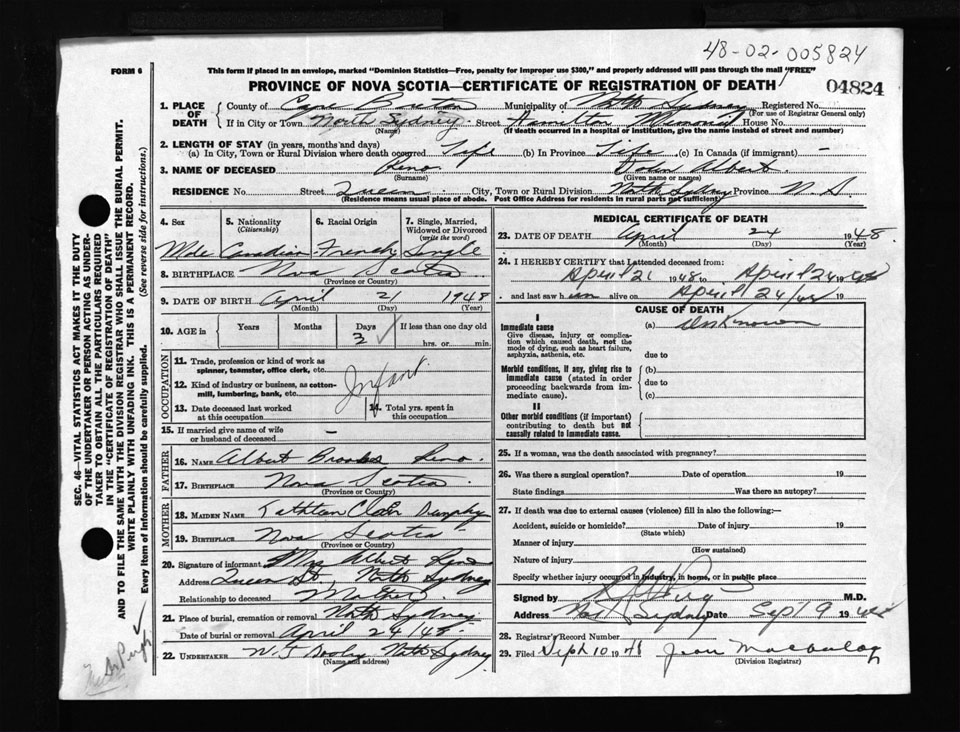 48-02-005824
FORM 6
This form if placed in an envelope, marked "Dominion Statistics—Free, penalty for improper use $300," and properly addressed will pass through the mail "FREE"
PROVINCE OF NOVA SCOTIA—CERTIFICATE OF REGISTRATION OF DEATH
04824
1. PLACE OF DEATH County of Cape Breton Municipality of North Sydney Registered No.
(For use of Registrar General only)
If in City or Town North Sydney Street Hamilton Memorial House No.
(Name) (If death occurred in a hospital or institution, give the name instead of street and number)
2. LENGTH OF STAY (in years, months and days)
(a) In City, Town or Rural Division where death occurred Life (b) In Province Life (c) In Canada (if immigrant) —
3. NAME OF DECEASED Reno John Albert
(Surname) (Given name or names)
RESIDENCE No. Street Queen City, Town or Rural Division North Sydney Province N.S.
(Residence means usual place of abode. Post Office Address for residents in rural parts not sufficient)
4. Sex 5. Nationality (Citizenship) 6. Racial Origin 7. Single, Married, Widowed or Divorced (write the word)
Male Canadian French Single
8. BIRTHPLACE Nova Scotia
(Province or Country)
9. DATE OF BIRTH April 21 1948
(Month) (Day) (Year)
10. AGE in Years Months Days If less than one day old
3 ✓ hrs. or min.
OCCUPATION
11. Trade, profession or kind of work as spinner, teamster, office clerk, etc.
12. Kind of industry or business, as cotton-mill, lumbering, bank, etc.
Infant
13. Date deceased last worked at this occupation
14. Total yrs. spent in this occupation
15. If married give name of wife or husband of deceased —
FATHER
16. NAME Albert Brooks Reno
17. BIRTHPLACE Nova Scotia
(Province or Country)
MOTHER
18. MAIDEN NAME Kathleen Clair Dunphy
19. BIRTHPLACE Nova Scotia
(Province or Country)
20. Signature of informant Mrs Albert Reno
Address Queen St, North Sydney
Relationship to deceased Mother
21. Place of burial, cremation or removal North Sydney
Date of burial or removal April 24/48
22. UNDERTAKER W. J. Dooley North Sydney
(Name and address)
MEDICAL CERTIFICATE OF DEATH
23. DATE OF DEATH April 24 1948
(Month) (Day) (Year)
24. I HEREBY CERTIFY that I attended deceased from:
April 21 1948 to April 24 1948
and last saw him alive on April 24/48 19
CAUSE OF DEATH
I
Immediate cause (a) Unknown
Give disease, injury or complication which caused death, not the mode of dying, such as heart failure, asphyxia, asthenia, etc.
due to
Morbid conditions, if any, giving rise to immediate cause (stated in order proceeding backwards from immediate cause).
(b)
due to
(c)
II
Other morbid conditions (if important) contributing to death but not causally related to immediate cause.
25. If a woman, was the death associated with pregnancy?
26. Was there a surgical operation? Date of operation 19
State findings Was there an autopsy?
27. If death was due to external causes (violence) fill in also the following:—
Accident, suicide or homicide? Date of injury 19
(State which)
Manner of injury
(How sustained)
Nature of injury
Specify whether injury occurred in industry, in home, or in public place
Signed by M.D.
Address North Sydney Date Sept 9 1948
28. Registrar's Record Number
29. Filed Sept 10 1948 Jean
(Division Registrar)
SEC. 46—VITAL STATISTICS ACT MAKES IT THE DUTY
OF THE UNDERTAKER OR PERSON ACTING AS UNDERTAKER
TO OBTAIN ALL THE PARTICULARS REQUIRED
IN THE "CERTIFICATE OF REGISTRATION OF DEATH"
AND TO FILE THE SAME WITH THE DIVISION REGISTRAR WHO SHALL ISSUE THE BURIAL PERMIT.
WRITE PLAINLY WITH UNFADING INK. THIS IS A PERMANENT RECORD.
Every item of information should be carefully supplied. (See reverse side for instructions.)